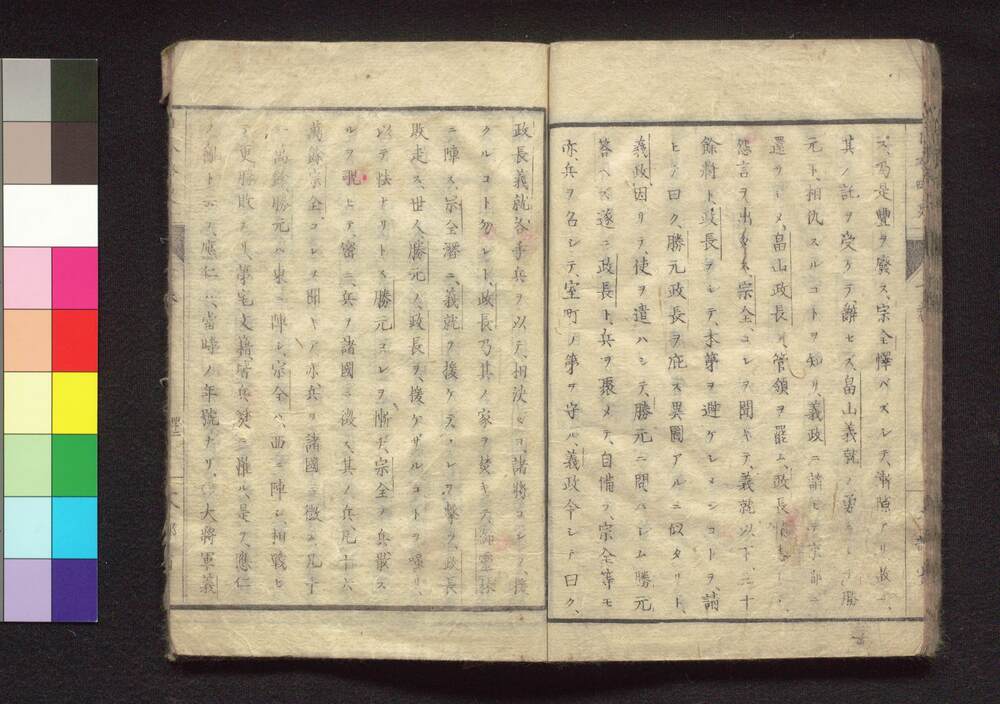 ス、乃是豊ヲ廃ス、宗全懌バズシテ、漸隙アリ、故ニ、
其ノ託ヲ受ケテ辭セズ、畠山義就ノ勇
元ト、相仇スルコトヲ知リ、義政ニ請ヒテ京都ニ
還ラシメ、畠山政長ノ管領ヲ罷ム、政長
怨言ヲ出ダス、宗全、コレヲ聞キテ、義就以下、三十
餘将ト、政長ヲシテ、本第ヲ避ケシメンコトヲ、請
ヒテ曰ク、勝元政長ヲ庇ス異圖アルニ似タリト、
義政、因リテ、使ヲ遣ハシテ、勝元ニ問ハシム勝元
答ヘズ、遂ニ政長ト、兵ヲ聚メテ、自備フ、宗全等モ
亦、兵ヲ召シテ、室町ノ第ヲ守ル、義政令シテ曰ク、
政長義就、各手兵ヲ以テ、相決セヨ、諸将コレヲ、援
クルコト勿レト、政長乃其ノ家ヲ焚キテ、御霊林
ニ陣ス、宗全潜ニ、義就ヲ援ケテ、コレヲ撃ツ、政長
敗走ス、世人勝元ノ政長ヲ、援ケザルコトヲ嗤リ、
以テ怯ナリトス勝元コレヲ慚ヂ、宗全ノ兵散ス
ルヲ覘ヒテ、密ニ、兵ヲ諸國ニ徴ス、其ノ兵、凡十六
萬餘、宗全、コレヲ聞キ、亦兵ヲ諸國ニ徴ス、凡十
一萬餘、勝元ハ東ニ陣シ、宗全ハ、西ニ陣シ、相戰ヒ
テ更勝敗アリ、第宅文籍、皆兵燹ニ罹ル、是ヲ、應仁
ノ亂ト云フ、應仁ハ、當時ノ年號ナリ、大将軍義